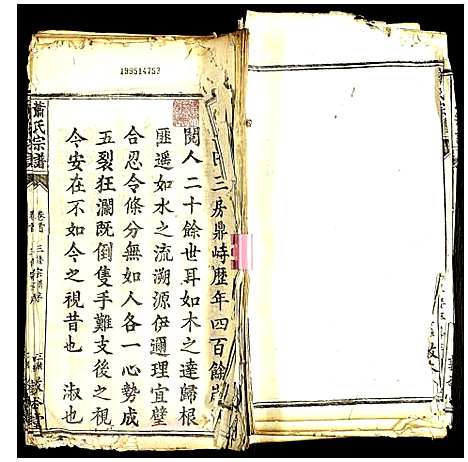 199514753
三房鼎峙歷年四百餘歲
閱人二十餘世耳如木之達歸根
匪遥如水之流溯源伊邇理宜璧
合忍令條分無如人各一心勢成
五裂狂瀾既倒隻手難支後之視
今安在不如今之視昔也 淑也
蕭氏宗譜
卷首
氏宗譜